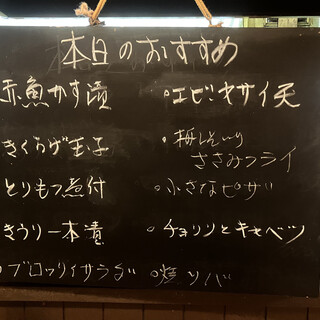 本日のおすすめ
赤魚かす漬
きくらげ玉子
とりもつ煮付
きうり一本漬
ブロッコリイサラダ
・エビ・ヤサイ天
・梅しそいり
ささみフライ
・小さなピザ
・チョリソとキャベツ
・焼ソバ